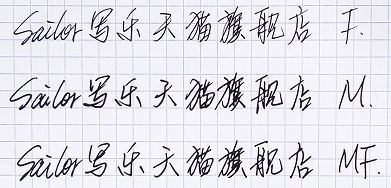 Sailor写乐天猫旗舰店 F.
Sailor写乐天猫旗舰店 M.
Sailor写乐天猫旗舰店 MF.